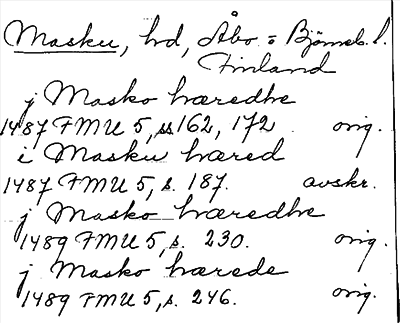 Masku, hd, Åbo = Björneb. l.
Finland
j Masko hæredhe
1487 FMU 5, ss 162, 172 orig.
i Masku hæred
1487 FMU 5, s. 187. avskr.
j Masko hæredhe
1489 FMU 5, s. 230. orig.
j Masko hærede
1489 FMU 5, s. 246. orig.